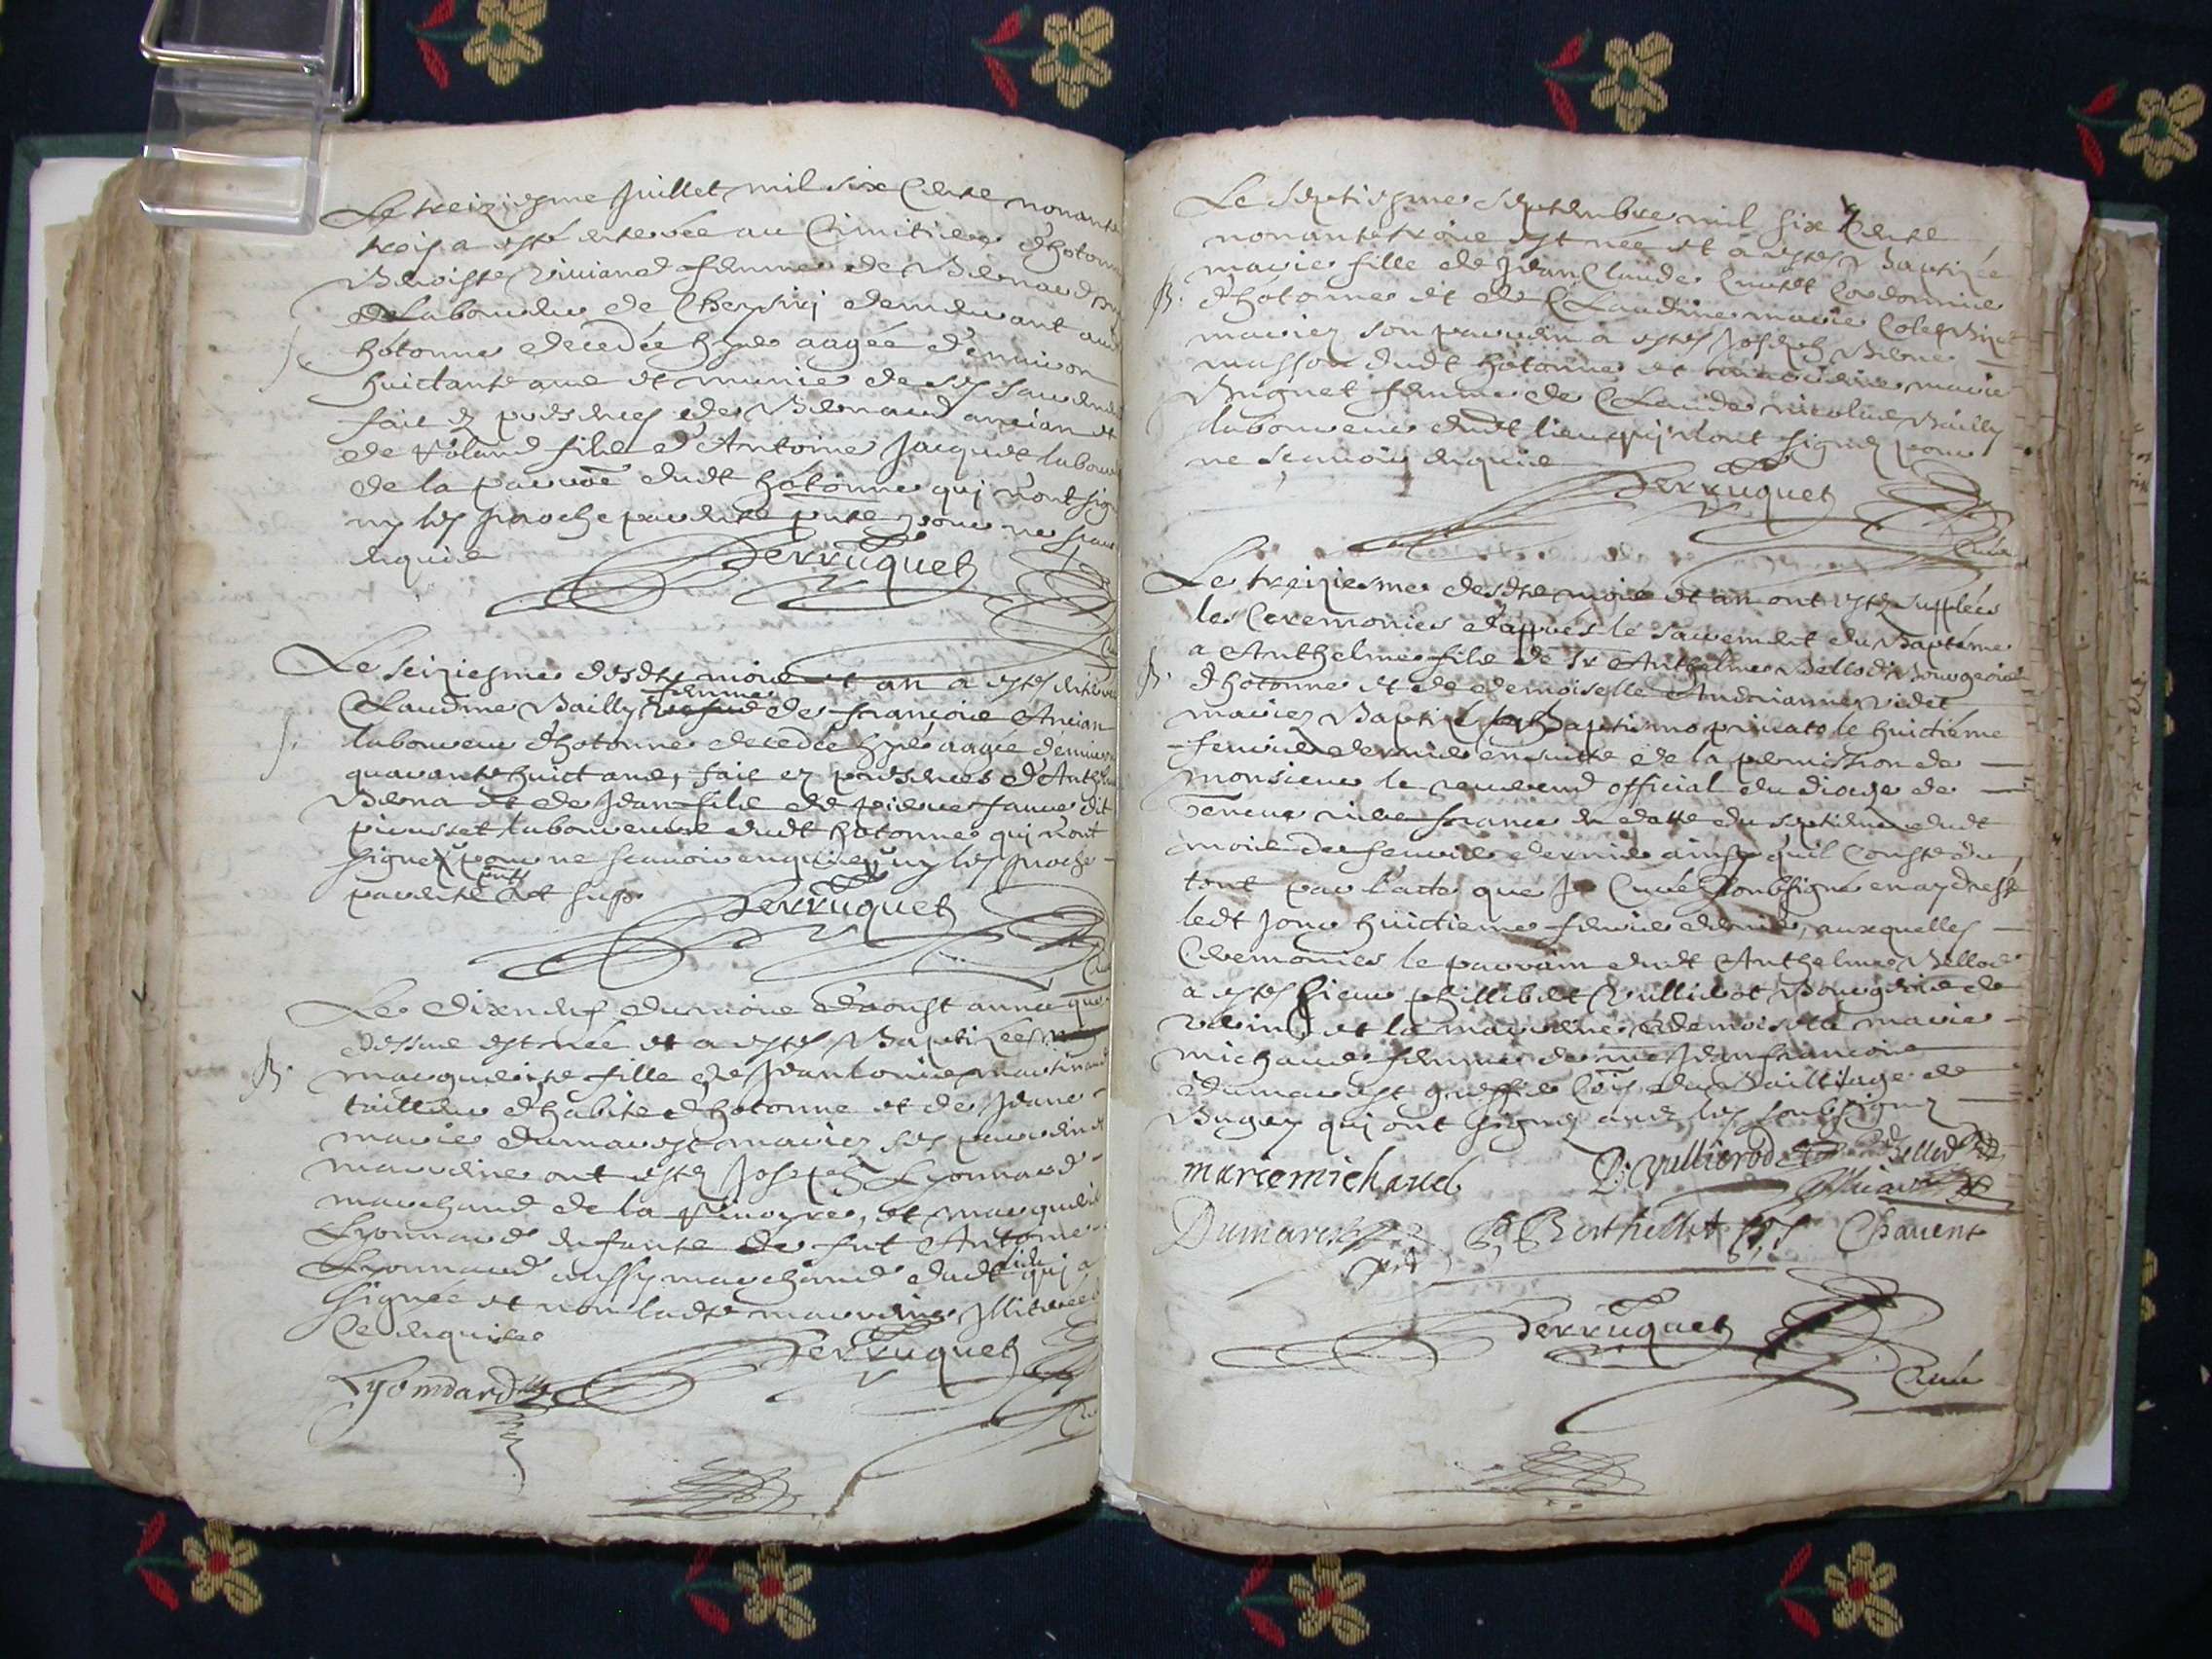 Le treiziesme Juillet mil six cents nonante
trois a esté enterrée au Cimitiere d'hotonne
Benoiste Viviand femme de Bernard
de laboureur de demeurant
hotonne decedée hyer aagée d'environ
huictante ans et munie de ses sacrements
fait en presences de Bernard ancian et
de Roland fils d'Antoine Jacquet labour
de la parroe dudt hotonne qui n'ont sig
ny les proche parents pour ne scav
enquis Perruquet
Le seiziesme desdts mois et an a esté enterrée
Claudine Bailly femme de françois Ancian
laboureur d'hotonne decedée hyer aagée d'environ
quarante huict ans, fait en presences d'Anth
Berna et de Jean fils de pierre favre dit
laboureurs dudt hotonne qui n'ont
signez pour ne scavoir enquis ny les proche
parents
Perruquet
Le dixneuf du mois d'aoust année que
dessus est née et a esté Baptizée
B. marguerite fille de Jean louis martinand
tailleur d'habits d'hotonne et de Jeane
marie dumarest mariez ses parrein et
marreine ont estez Joseph Lyonnard
marchand de la Rivoyre, et marguerite
Lyonnard enfants de fut Antoine
Lyonnard aussy marchand dudt lieu qui a
signée et non ladte marreine Illiterée
Ce enquise
Perruquet
Lyonnard
Le septiesme septembre mil six Cents
nonante trois est née et a estez Baptizée
marie fille de Jean Claude Cordonnier
B. d'hotonne et de Claudine marie
mariez son parrein a estez Joseph Berne
masson dudt hotonne et marreine marie
Brignet femme de Claude nicolas Bailly
laboureur dudt lieu qui n'ont signez pour
ne scavoir enquis
Perruquet
Curé
Le treiziesme desdts mois et an ont estez supplées
les Ceremonies d'appres le sacrement du Baptême
a Anthelme fils de Sr Anthelme Bellod Bourgeois
B. d'hotonne et de demoiselle Andrianne videt
mariez Baptizé Baptismo privato le huictiéme
fevrier dernier ensuitte de la permission de
monsieur le reverend official du dioceze de
Geneve en datte du septieme dudt
mois de fevrier dernier ainsy qu'il Conste du
tout par l'acte que Je Curé soubsigné en ay dressé
ledt Jour huictieme fevrier dernier, auxquelles
Ceremonies le parrain dudt Anthelme Bellod
a estez sieur phillibert Vullierod Bourgeois de
et la marreine demoiselle marie
michaud femme de me Jean françois
dumarest greffier au Bailliage de
Bugey qui ont signez avec les soubsignez
marie michaud P. Vullierod Bellod
Dumarest Berthellet Chavent
Perruquet
Curé